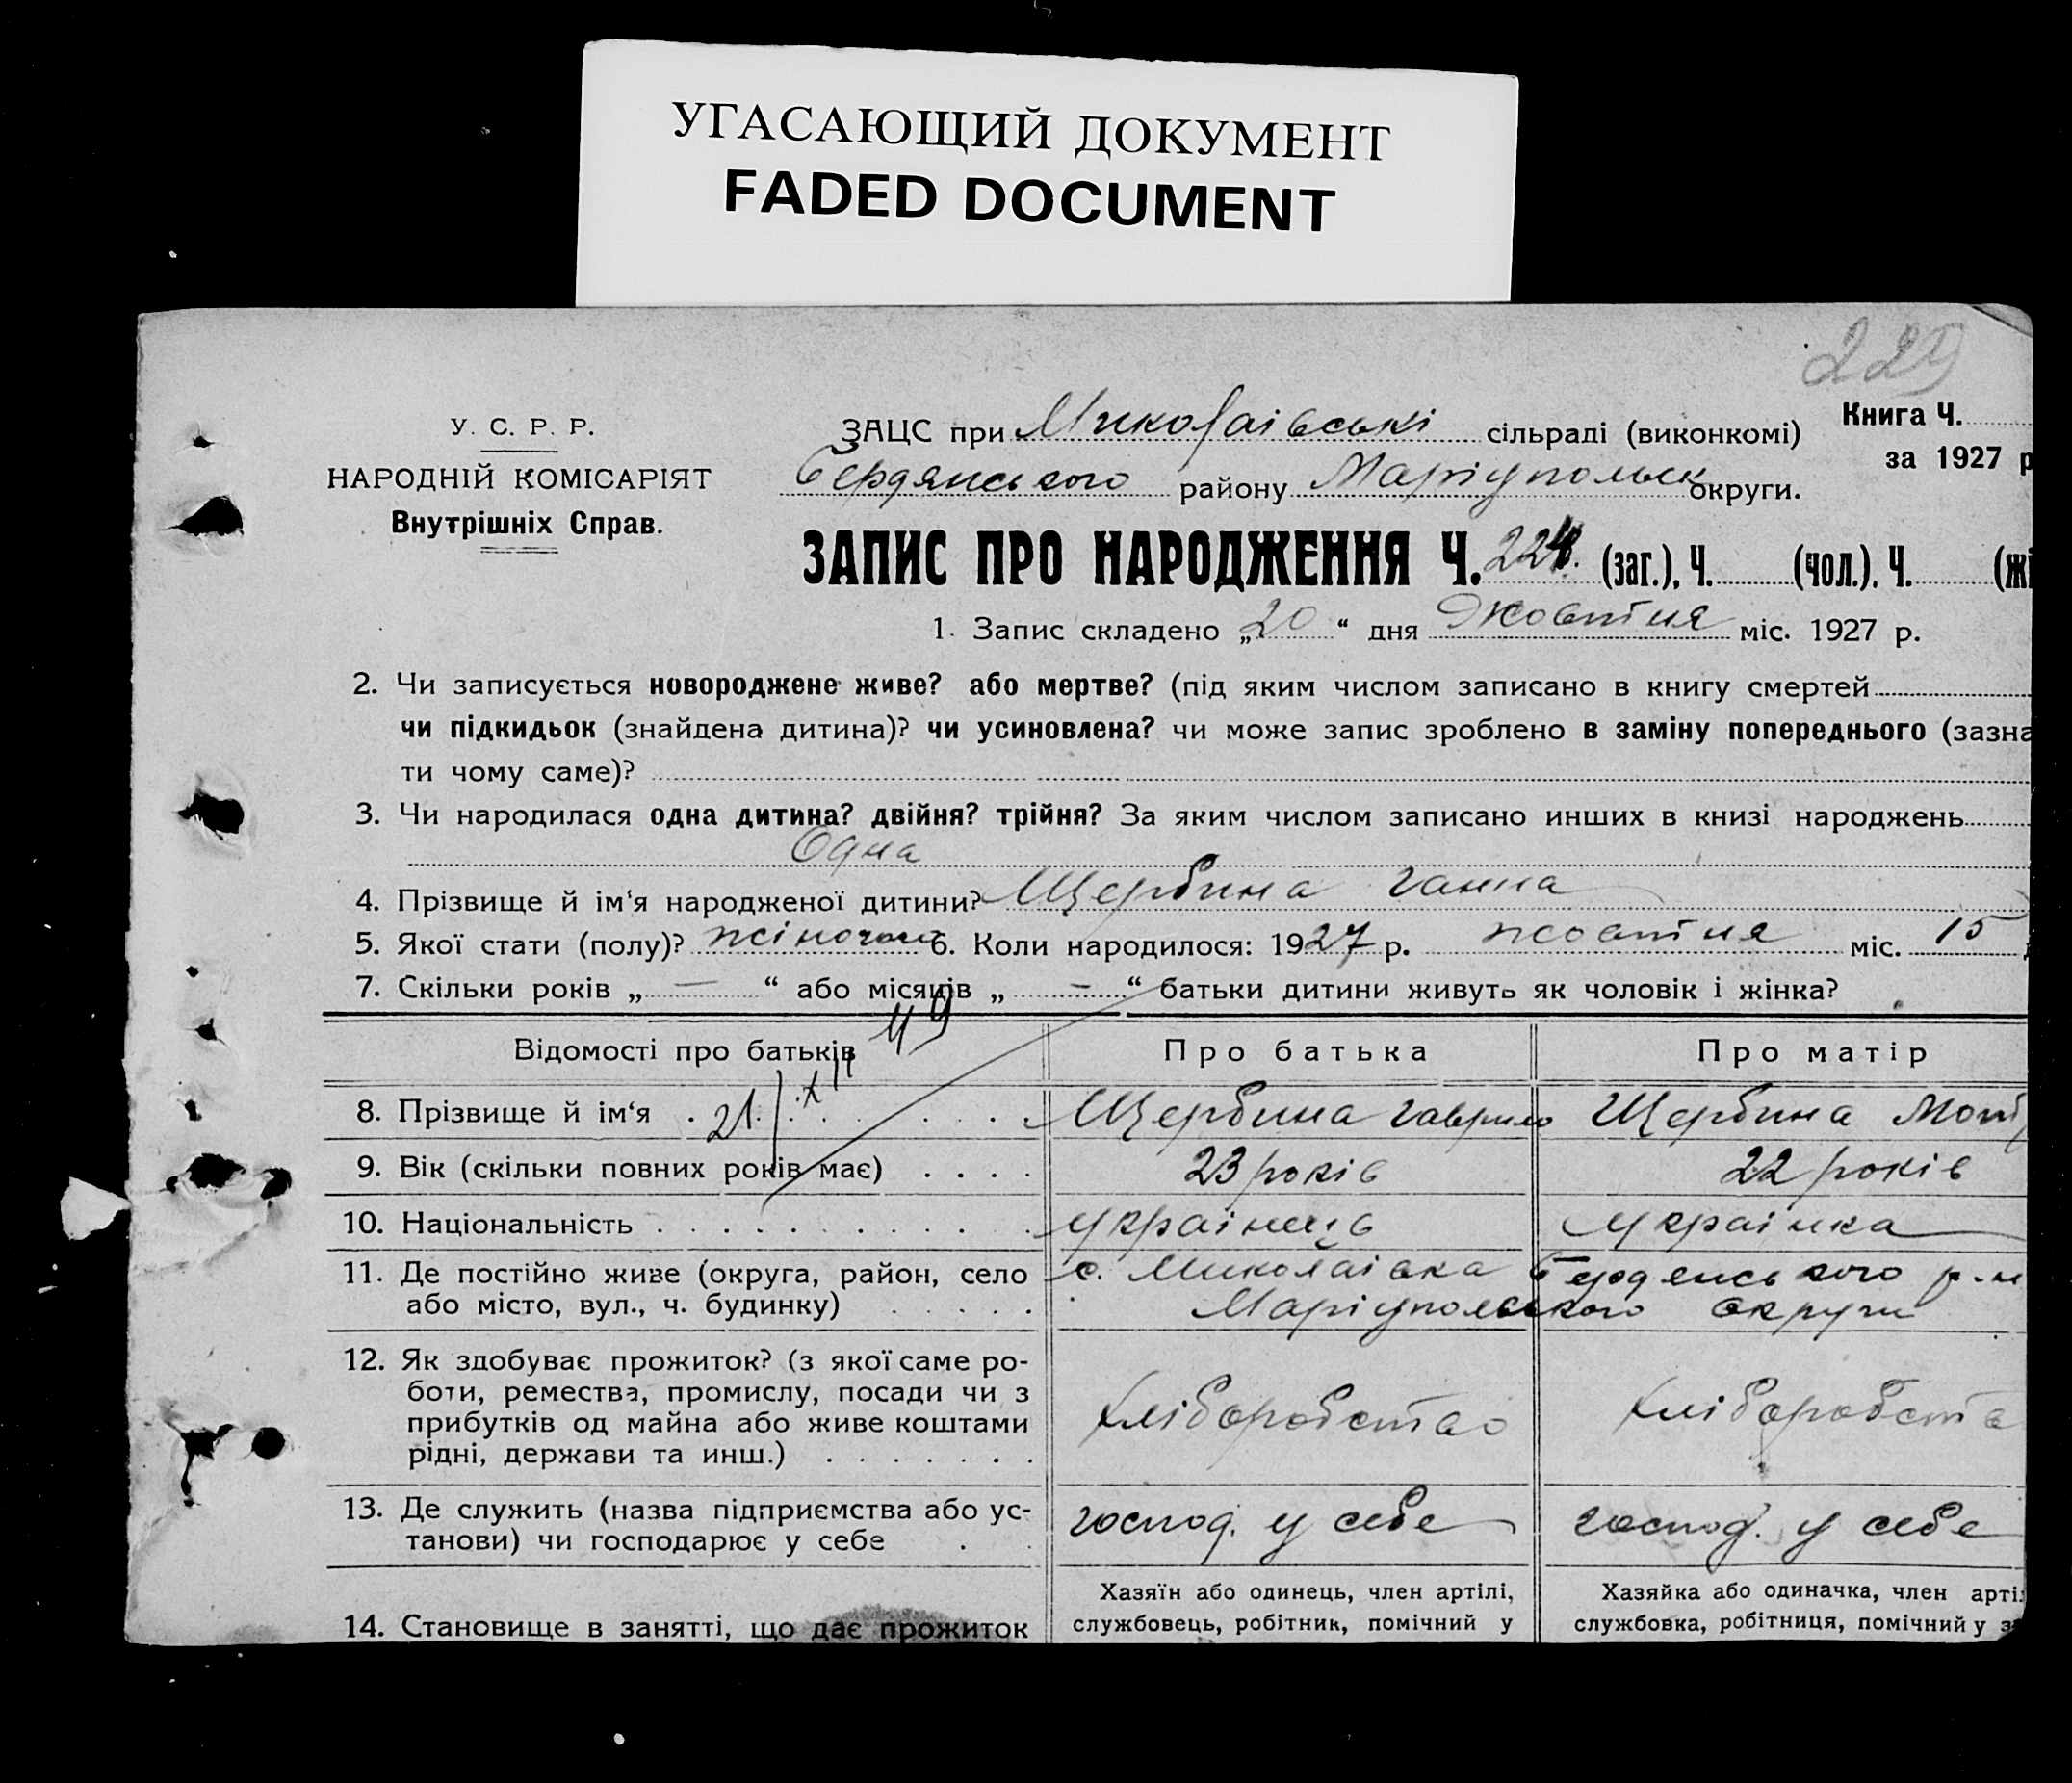 УГАСАЮЩИЙ ДОКУМЕНТ
FADED DOCUMENT
У. С. Р. Р.
НАРОДНІЙ КОМІСАРІЯТ
Внутрішніх Справ.
ЗАЦС при Миколаївські сільраді (виконкомі)
Книга Ч.
за 1927 р
Бердянського району Маріупольськ округи.
ЗАПИС ПРО НАРОДЖЕННЯ Ч. 224. (заг.), Ч. (чол.). Ч. (жі
1. Запис складено „20“ дня Жовтня міс. 1927 р.
2. Чи записується новороджене живе? або мертве? (під яким числом записано в книгу смертей
чи підкидьок (знайдена дитина)? чи усиновлена? чи може запис зроблено в заміну попереднього (зазна
ти чому саме)?
3. Чи народилася одна дитина? двійня? трійня? За яким числом записано инших в книзі народжень
Одна
4. Прізвище й ім‘я народженої дитини? Щербина Ганна
5. Якої стати (полу)? жіночого 6. Коли народилося: 1927 р. жовтня міс. 15
7. Скільки років „ — “ або місяців „ — “ батьки дитини живуть як чоловік і жінка?
49
Відомості про батьків
Про батька
Про матір
21/XII
8. Прізвище й ім‘я
Щербина Гаврило
Щербина Мотр
9. Вік (скільки повних років має)
23 років
22 років
10. Національність
Українець
Українка
11. Де постійно живе (округа, район, село
або місто, вул., ч. будинку)
с. Миколаївка Бердянського р-н
Маріупольського округи
12. Як здобуває прожиток? (з якої саме ро-
боти, ремества, промислу, посади чи з
прибутків од майна або живе коштами
рідні, держави та инш.)
хліборобство
хліборобств
13. Де служить (назва підприємства або ус-
танови) чи господарює у себе
господ. у себе
господ. у себе
14. Становище в занятті, що дає прожиток
Хазяїн або одинець, член артілі,
службовець, робітник, помічний у
Хазяйка або одиначка, член арті
службовка, робітниця, помічний у з